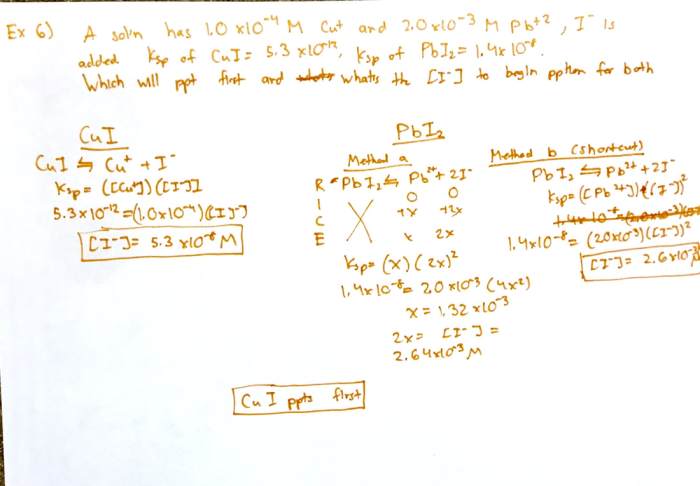 Ex 6) A sol'n has 1.0 x10⁻⁴ M Cu⁺ and 2.0x10⁻³ M Pb⁺², I⁻ is
added. Ksp of CuI = 5.3 x10⁻¹², Ksp of PbI₂ = 1.4x10⁻⁸.
Which will ppt first and what's the [I⁻] to begin for both
CuI
CuI ⇆ Cu⁺ + I⁻
Ksp = ([Cu⁺])([I⁻])
5.3x10⁻¹² = (1.0x10⁻⁴)([I⁻])
[I⁻] = 5.3 x10⁻⁸ M
PbI₂
Method a
R PbI₂ ⇆ Pb²⁺ + 2I⁻
I 0 0
C +x +2x
E x 2x
Ksp = (x)(2x)²
1.4x10⁻⁸ = 2.0 x10⁻³ (4x²)
x = 1.32 x10⁻³
2x = [I⁻] =
2.64x10⁻³ M
Method b (shortcut)
PbI₂ ⇆ Pb²⁺ + 2I⁻
Ksp = ([Pb²⁺])([I⁻])²
1.4x10⁻⁸ = (2.0x10⁻³)([I⁻])²
[I⁻] = 2.6x10⁻³ M
CuI ppts first